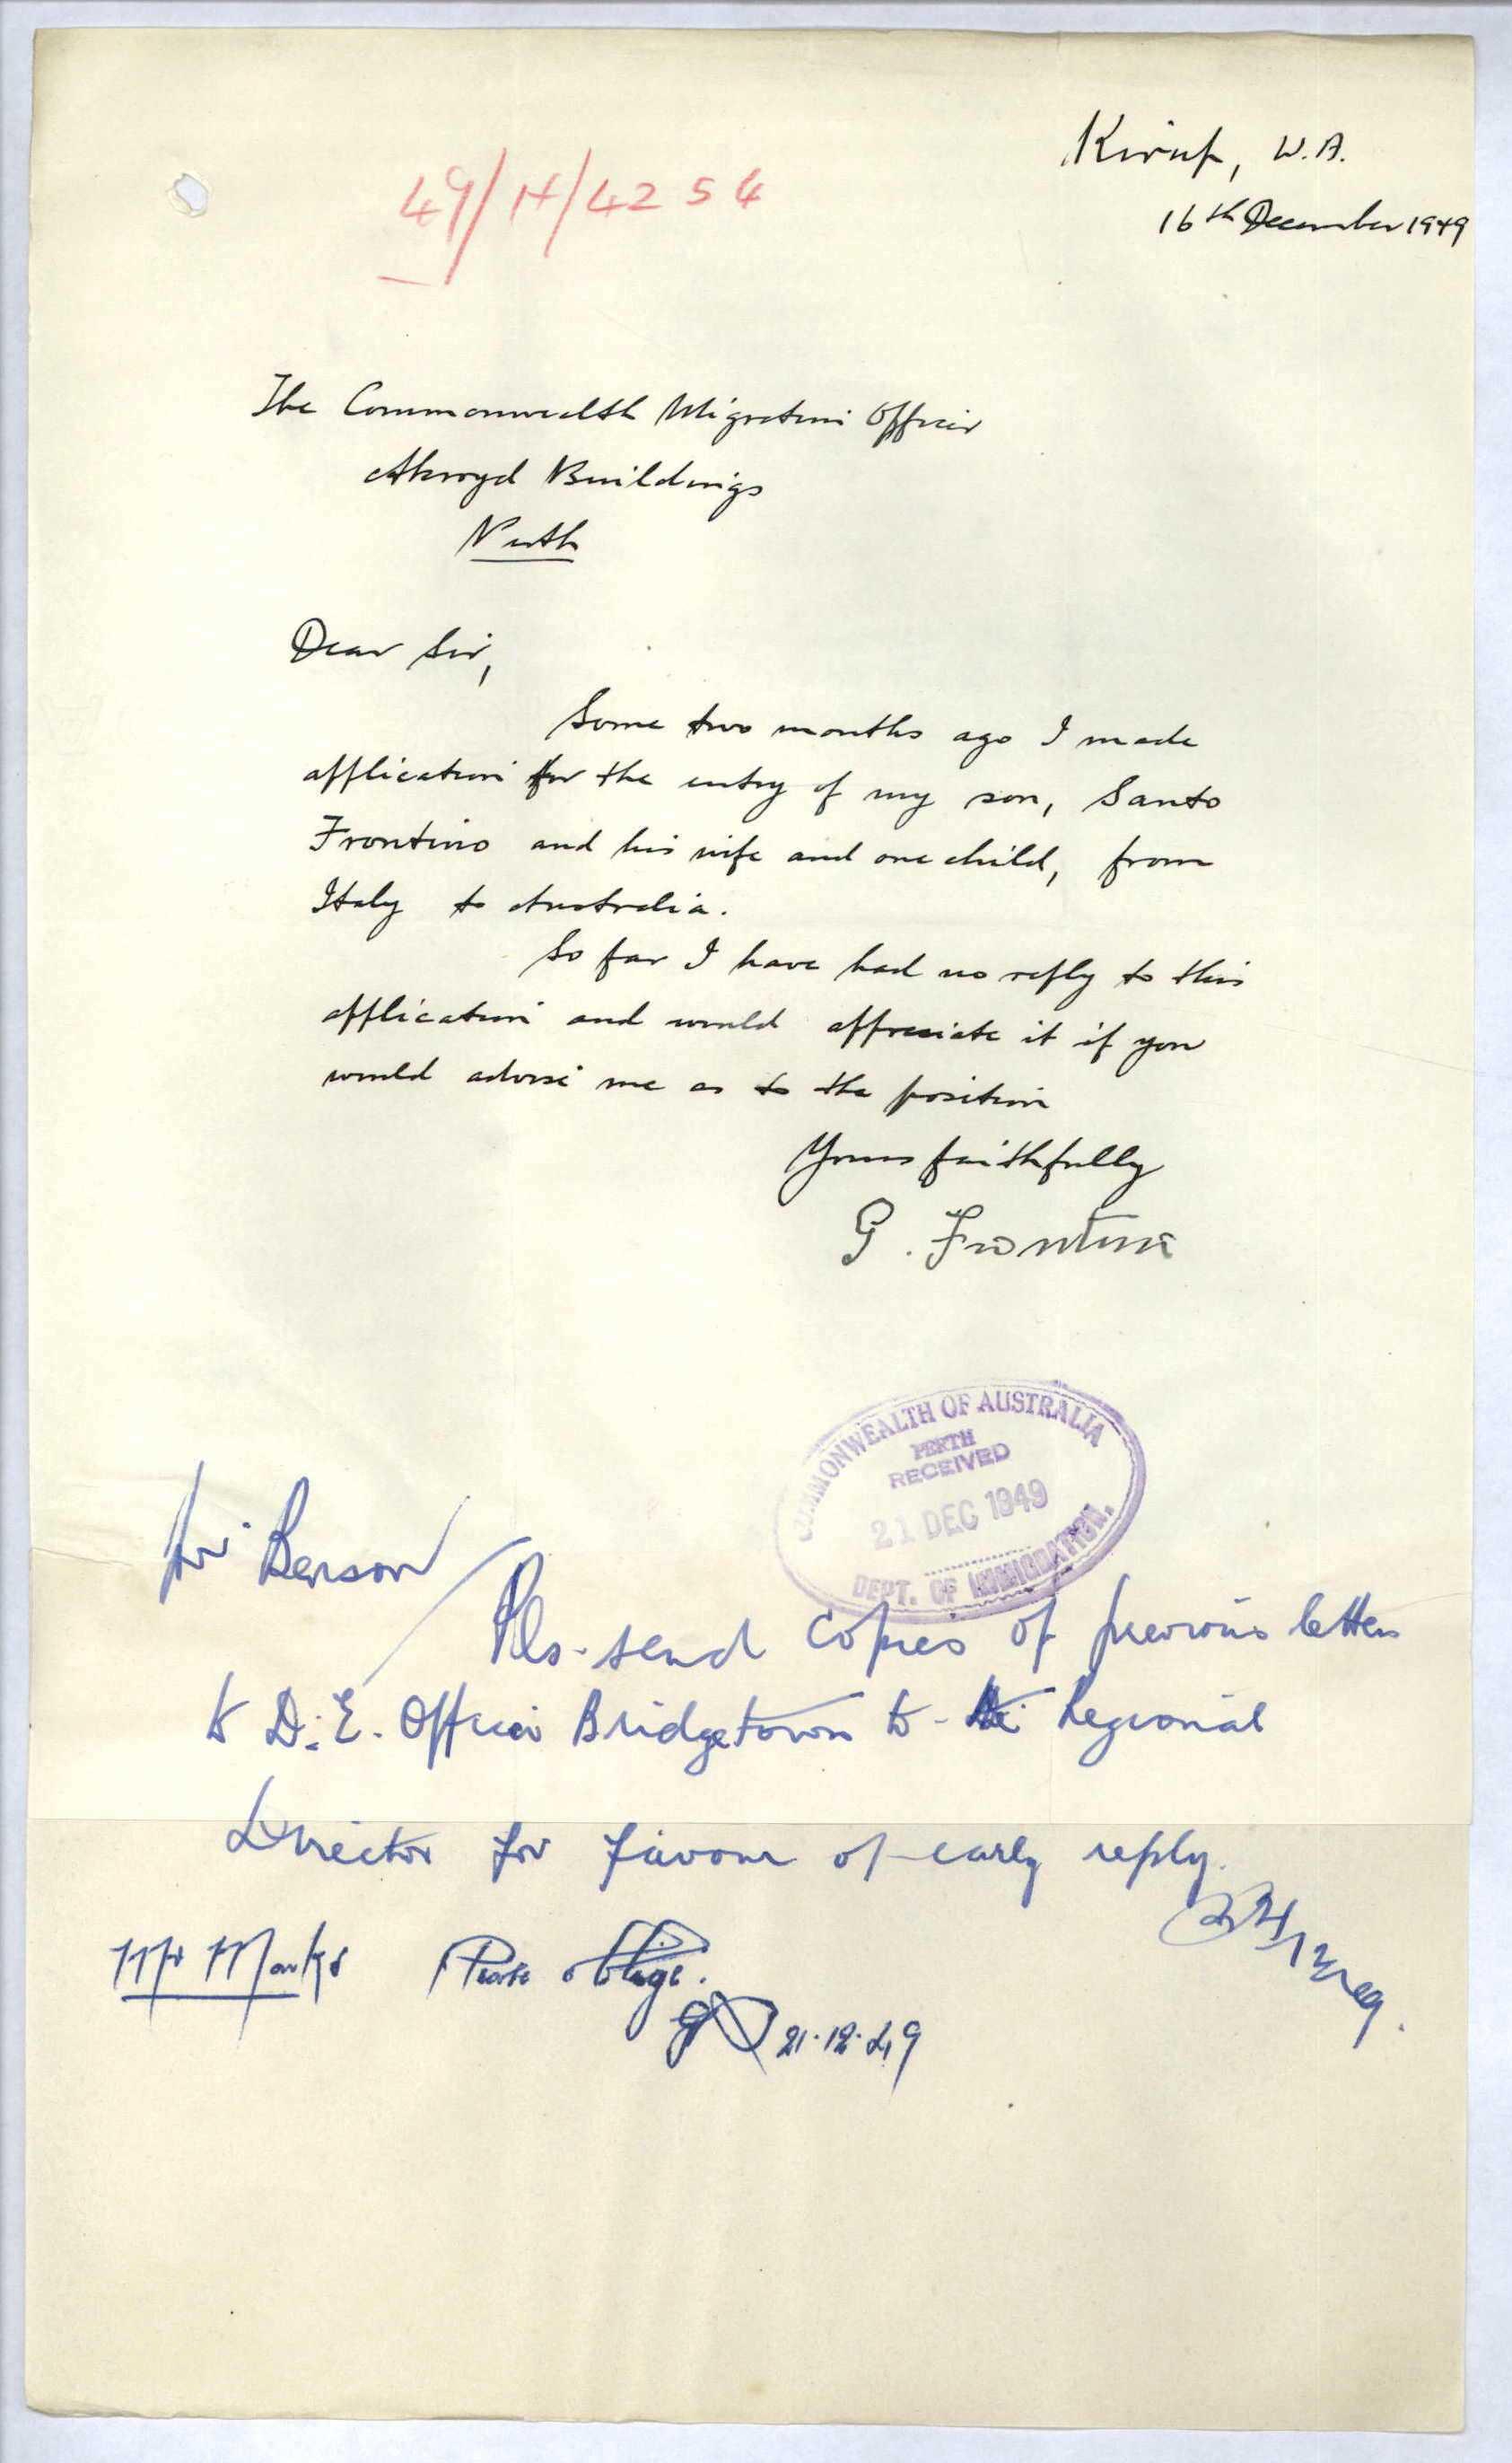 49/H/4254
Kirup, W.A.
16th December 1949
The Commonwealth Migration Officer
Akroyd Buildings
Perth
Dear Sir,
Some two months ago I made
application for the entry of my son, Santo
Frontino and his wife and one child, from
Italy to Australia.
So far I have had no reply to this
application and would appreciate it if you
would advise me as to the position
Yours faithfully
G. Frontino
COMMONWEALTH OF AUSTRALIA
PERTH
RECEIVED
21 DEC 1949
DEPT. OF IMMIGRATION.
Mr Benson
Pls. send copies of previous letters
to D.E. Officer Bridgetown to the Regional
Director for favour of early reply.
Mr Marks Please oblige.
21.12.49